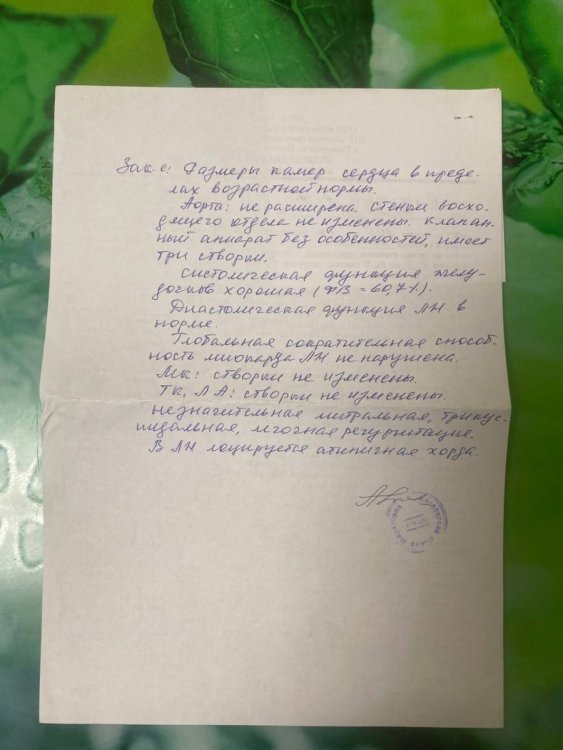 Зак-е: Размеры камер сердца в преде-
лах возрастной нормы.
Аорта: не расширена. стенки восхо-
дящего отдела не изменены. клапан-
ный аппарат без особенностей, имеет
три створки.
Систолическая функция желу-
дочков хорошая (ФВ = 60,7%).
Диастолическая функция ЛЖ в
норме.
Глобальная сократительная способ-
ность миокарда ЛЖ не нарушена.
МК: створки не изменены.
ТК, ЛА: створки не изменены.
незначительная митральная, трикус-
пидальная, легочная регургитация.
В ЛЖ лоцируется атипичная хорда.